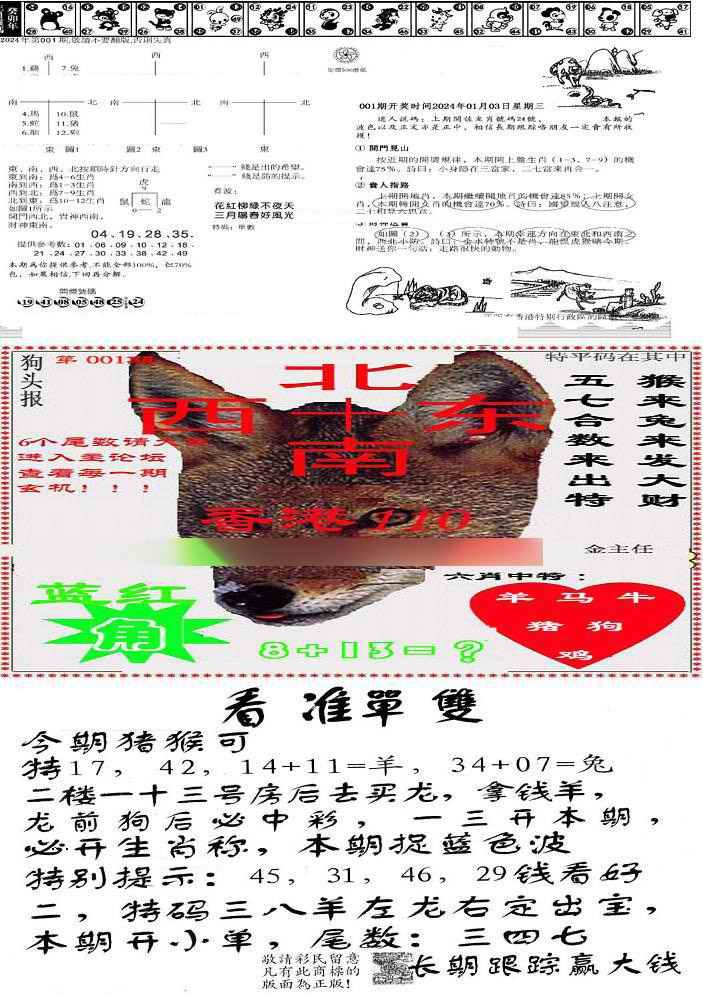 癸卯年
2024年第001期,敬請不要翻版,否則失真
西
西
西
1.鷄 7.兔
南 北 南 北 南 北
4.馬 10.鼠
5.蛇 11.猪
6.龍 12.
東 圖1 圖2 東 圖3 東
東、南、西、北按順時針方向行走
東到南：爲4-6生肖
南到西：爲1-3生肖
西到北：爲7-9生肖
北到東：爲10-12生肖
如圖1所示
開門西北，貴神西南，
財神東南。
虎
鼠 蛇 龍
綫是出的希望。
綫是防的提示。
看波：
花紅柳綠不夜天
三月陽春好風光
特碼：單數
04.19.28.35.
提供參考數：01·06·09·10·12·18·
21·24·27·30·33·38·42·49
本期爲你提供參考,不能全部100%，但70%
色，如果相信,下回再分解。
19 41 08 05 48 25 24
001期开奖时间2024年01月03日星期三
本報的
波色以及正文亦是正中，相信長期跟踪咯朋友一定會有所收
獲！
① 開門見山
按近期的開獎規律，本期開上盤生肖（1-3、7-9）的機
會達75%。詩曰：小身隱在三富家，二七當來再合一。
② 貴人指路
上期開地肖，本期繼續開地肖的機會達85%；上期開文
肖，本期轉開文肖的機會達70%。詩曰：
如圖（2）、（3）所示，本期幸運方向在東北和西南之
間，西北小防。詩曰：
財神送你一句話：走路很快的動物。
香港特别行政區的
狗头报
第 001期
特平码在其中
北
西 十 东
南
猴来兔来发大财
五七合数来出特
6个尾数请
进入主论坛
查看每一期
玄机！！！
香港110
金主任
六肖中特：
蓝红
角
羊 马 牛
猪 狗
鸡
8+13=?
看准單雙
今期猪猴可
特17，42，14+11=羊，34+07=兔
二楼一十三号房后去买龙，拿钱羊，
龙前狗后必中彩，一三开本期，
必开生肖称，本期捉蓝色波
特别提示：45，31，46，29钱看好
二，特码三八羊左龙右定出宝，
本期开小单，尾数：三四七
敬請彩民留意
凡有此商標的
版面為正版!
长期跟踪赢大钱